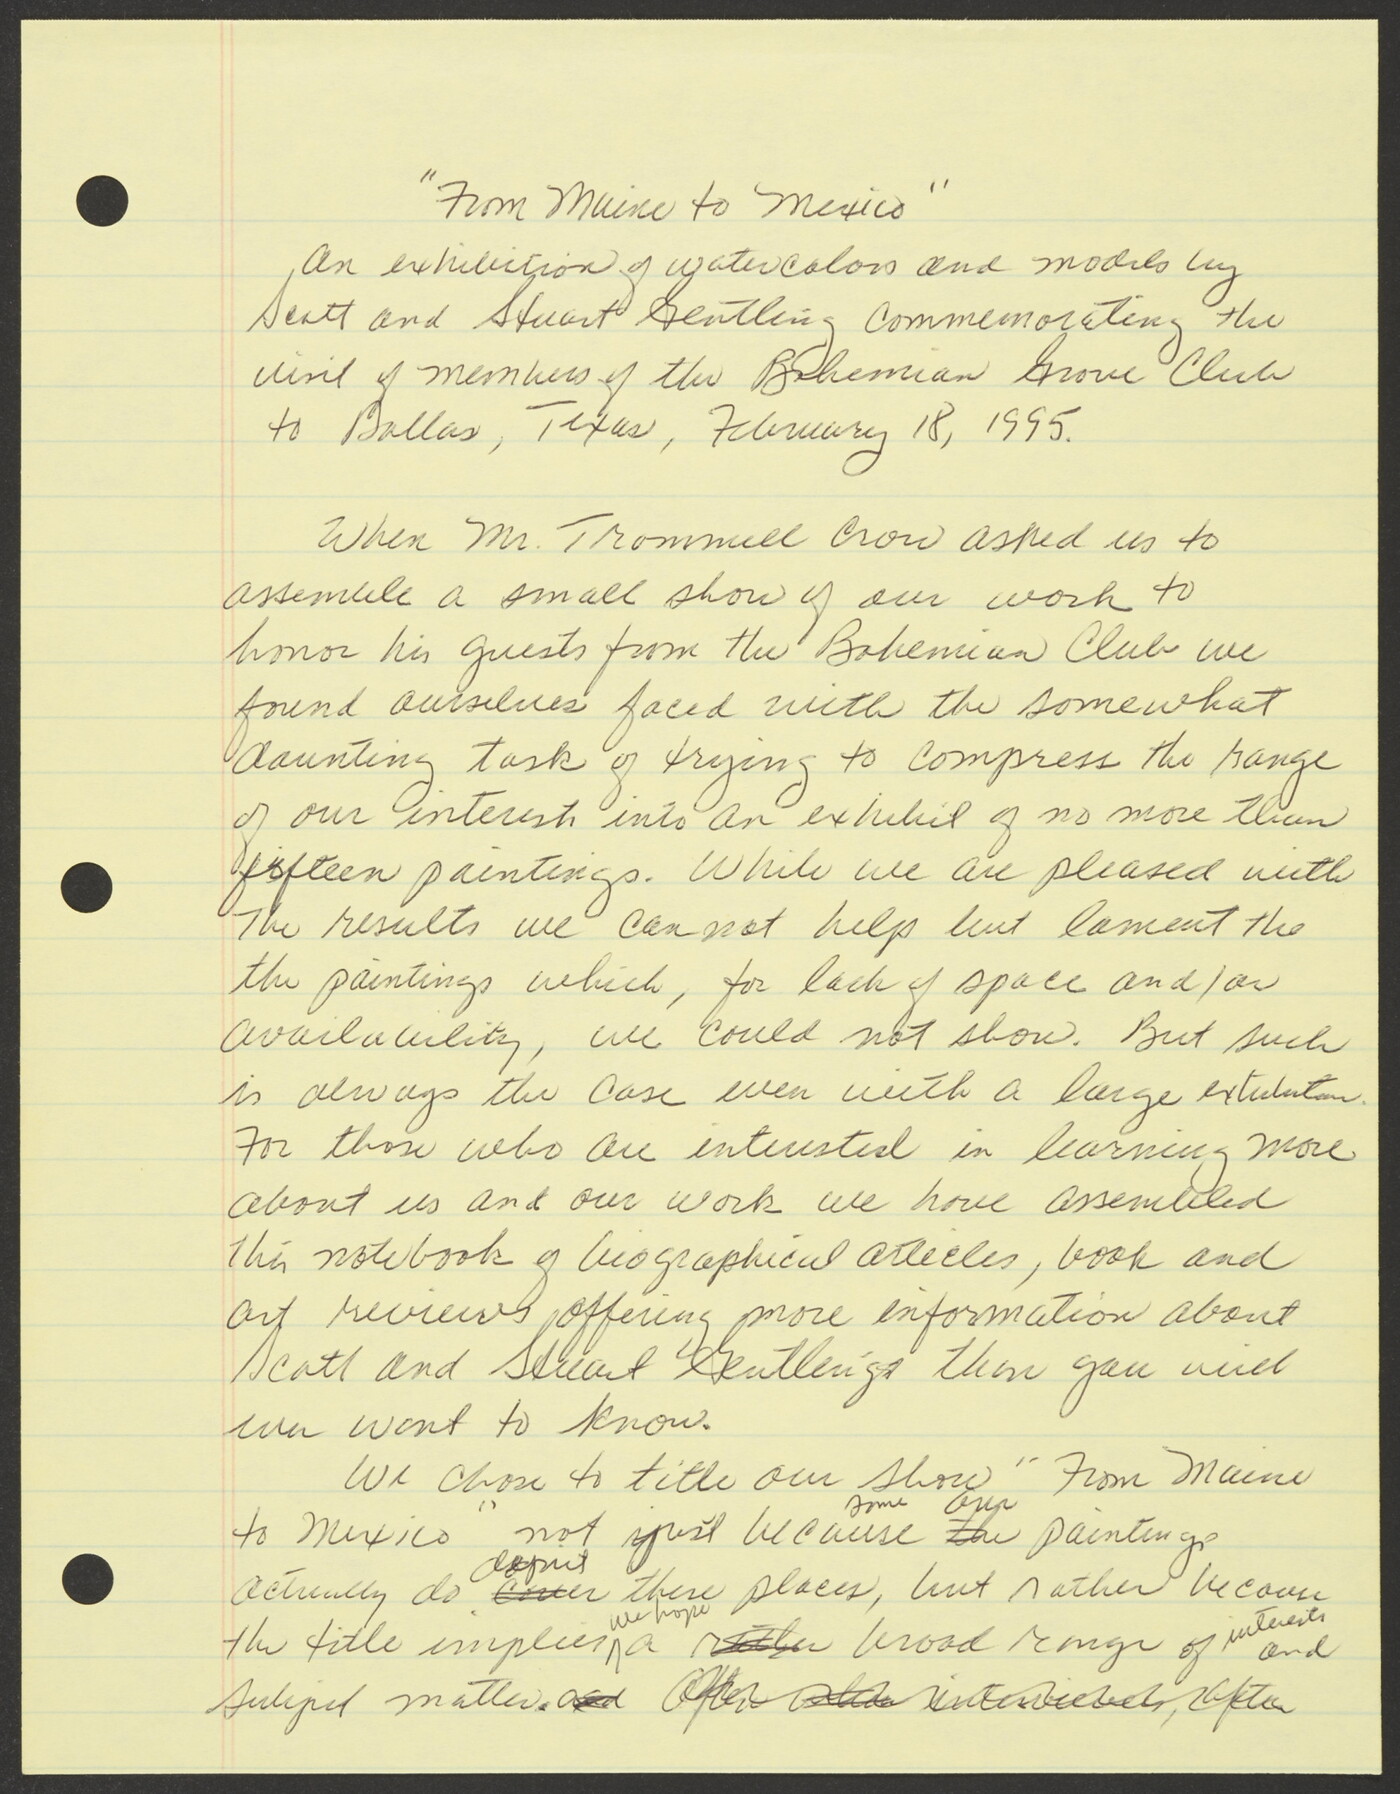 "From Maine to Mexico"
An exhibition of watercolors and models by
Scott and Stuart Gentling commemorating the
visit of members of the Bohemian Grove Club
to Dallas, Texas, February 18, 1995.
When Mr. Trammell Crow asked us to
assemble a small show of our work to
honor his guests from the Bohemian Club we
found ourselves faced with the somewhat
daunting task of trying to compress the range
of our interests into an exhibit of no more than
fifteen paintings. While we are pleased with
the results we cannot help but lament the
the paintings which, for lack of space and/or
availability, we could not show. But such
is always the case even with a large exhibition.
For those who are interested in learning more
about us and our work we have assembled
this notebook of biographical articles, book and
art reviews offering more information about
Scott and Stuart Gentlings than you will
ever want to know.
We chose to title our show "From Maine
some our
to Mexico" not just because the paintings
depict
actually do cover these places, but rather because
we hope interests
the title implies, a rather broad range of and
subject matter. and Often interviewers, after